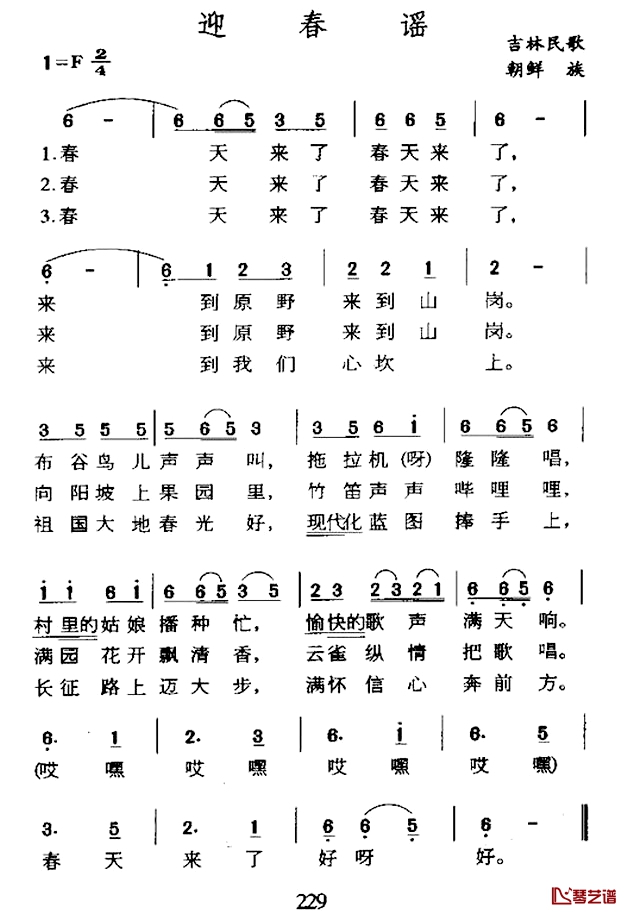 迎春谣
1=F 2/4
吉林民歌
朝鲜 族
6 - | 6 6 6 5 3 5 | 6 6 6 5 | 6 - |
1.春 天 来 了 春 天 来 了,
2.春 天 来 了 春 天 来 了,
3.春 天 来 了 春 天 来 了,
6 - | 6 1 2 3 | 2 2 1 | 2 - |
来 到 原 野 来 到 山 岗。
来 到 原 野 来 到 山 岗。
来 到 我 们 心 坎 上。
3 5 5 5 | 5 6 5 3 | 3 5 6 i | 5 6 5 6 |
布 谷 鸟 儿 声 声 叫, 拖 拉 机 (呀) 隆 隆 唱,
向 阳 坡 上 果 园 里, 竹 笛 声 声 哔 哩 哩,
祖 国 大 地 春 光 好, 现代化 蓝 图 捧 手 上,
i i 6 i | 6 6 5 3 5 | 2 3 2 3 2 1 | 6 6 5 6 |
村 里的 姑 娘 播 种 忙, 愉快的 歌 声 满 天 响。
满 园 花 开 飘 清 香, 云 雀 纵 情 把 歌 唱。
长 征 路 上 迈 大 步, 满 怀 信 心 奔 前 方。
6. 1 | 2. 3 | 6. i | 6. 5 |
(哎 嘿 哎 嘿 哎 嘿 哎 嘿)
3. 5 | 2. 1 | 6 6 5 | 6 - ‖
春 天 来 了 好 呀 好。
229
琴艺谱